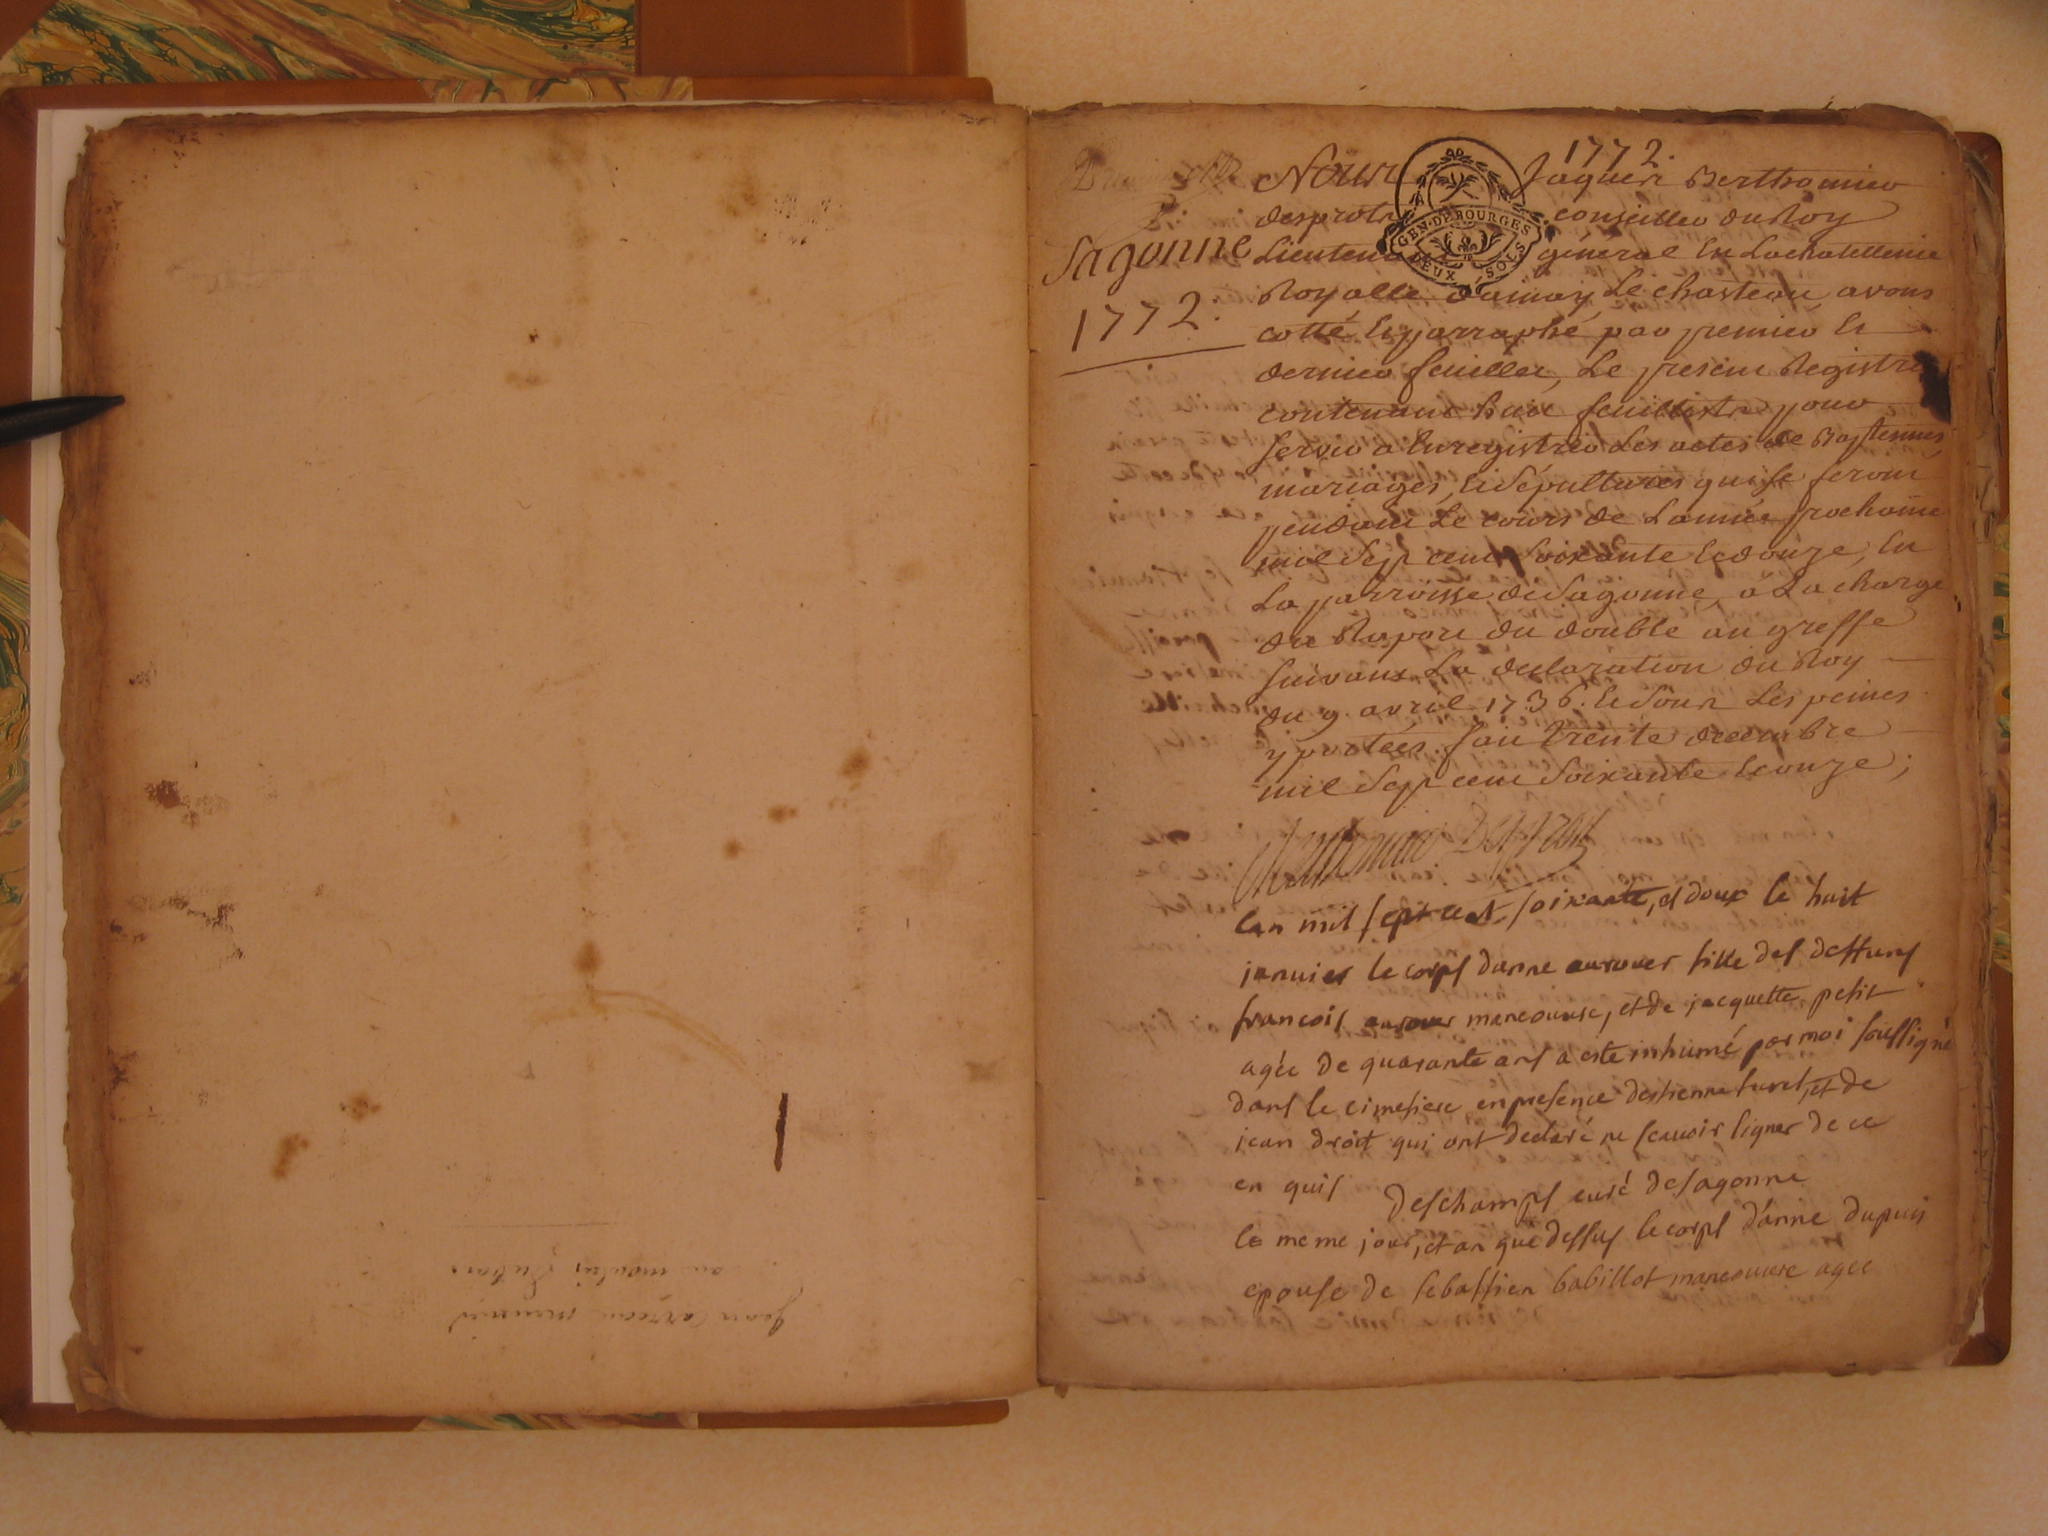 1772.
Nous Jaques Berthomier
desprots conseiller du Roy
Sagonne
Lieutenant général En La chatellenie
1772.
Royalle dainay Le chasteau, avons
cotté Et parraphé par premier Et
dernier feuillet, Le present Registre
contenant huit feuillets pour
servir a Enregistrer Les actes de Baptemes
mariages, Et sépultures qui se feront
pendant Le cours de L'année prochaine
mil Sept cent Soixante Et douze, En
La parroisse de Sagonne, a La charge
du Raport du double au greffe
suivant La déclaration du Roy
du 9. avril 1736. Et Sous Les peines
y portées. fait Trente decembre
mil Sept cent Soixante Et onze;
GEN. DE BOURGES
DEUX SOLS
Berthomier Desprots
Lan mil sept cent soixante, et doux le huit
janvier le corps danne fille des deffuns
francois maneouvre, et de jacquette petit
agée de quarante ans a este inhumé par moi soussigné
dans le cimetiere en presence destienne turet, et de
jean droit qui ont declaré ne scauoir signer de ce
en quis
Deschamps curé de Sagonne
le meme jour, et an que dessus le corps d'anne dupuis
epouse de sebastien babillot maneouvre agee
au moulin
jean meunier